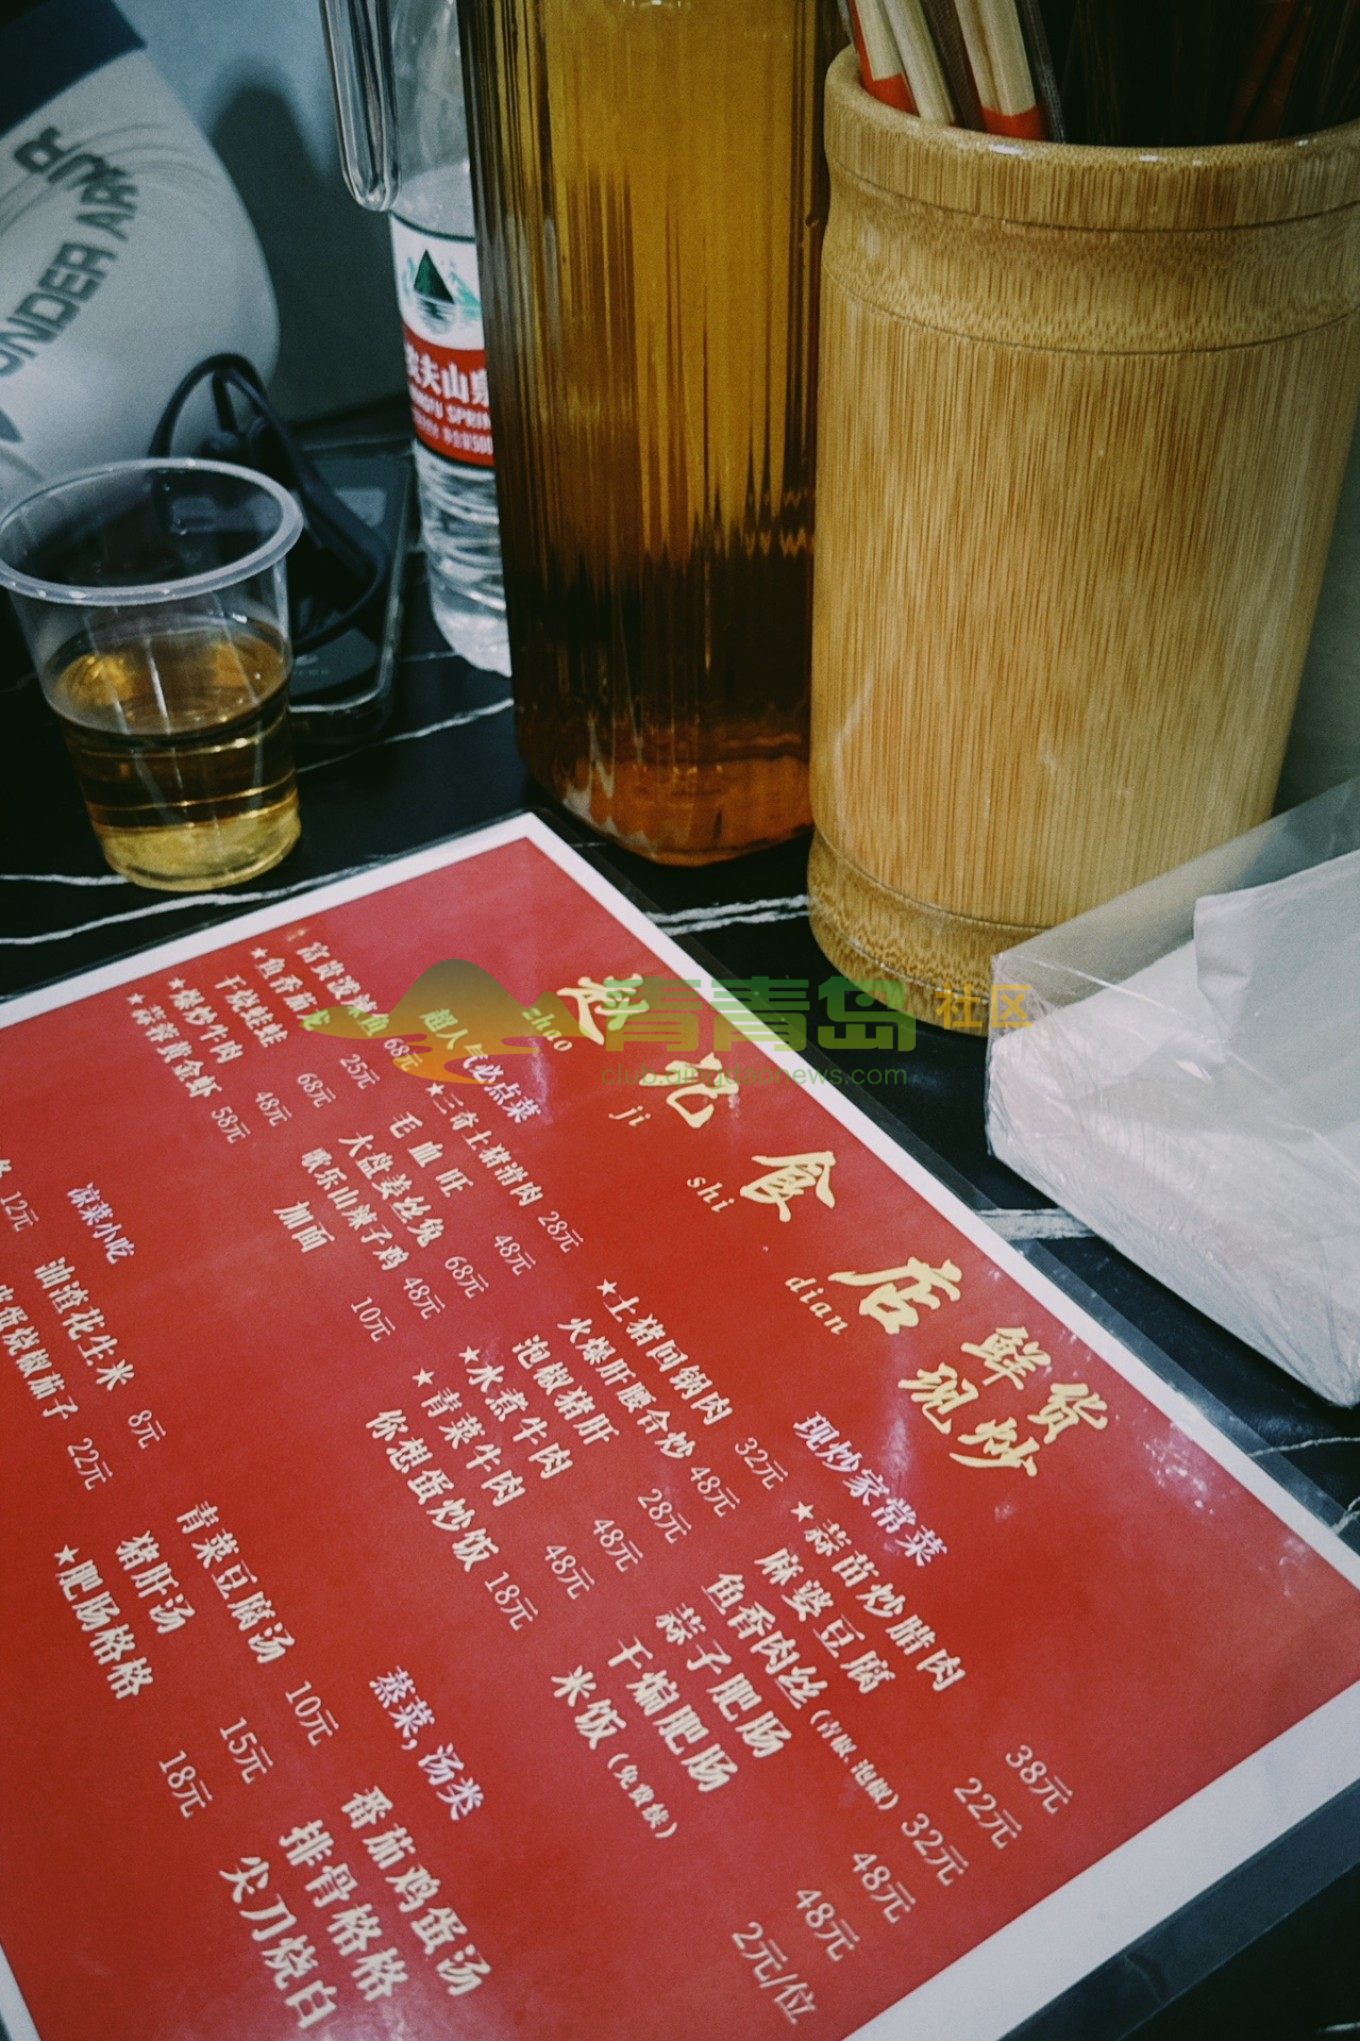 UNDER ARMOUR
农夫山泉
青青岛 社区
club.qingdaonews.com
赵记食店
zhao ji shi dian
鲜货
现炒
超人气必点菜
富贵泼辣鱼 68元
★鱼香茄龙 25元
干烧蛙蛙 68元
★爆炒牛肉 48元
★蒜蓉黄金虾 58元
★三奇土猪滑肉 28元
毛血旺 48元
大盘姜丝兔 68元
歌乐山辣子鸡 48元
加面 10元
现炒家常菜
★土猪回锅肉 32元
火爆肝腰合炒 48元
泡椒猪肝 28元
★水煮牛肉 48元
★青菜牛肉 48元
你想蛋炒饭 18元
★蒜苗炒腊肉 38元
麻婆豆腐 22元
鱼香肉丝(青椒、泡椒) 32元
蒜子肥肠 48元
干煸肥肠 48元
米饭(免费续) 2元/位
凉菜小吃
12元
皮蛋烧椒茄子 22元
油渣花生米 8元
蒸菜,汤类
青菜豆腐汤 10元
猪肝汤 15元
★肥肠格格 18元
番茄鸡蛋汤
排骨格格
尖刀烧白